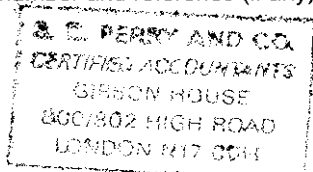 PERRY AND CO.
CERTIFIED ACCOUNTANTS
GIBSON HOUSE
800/802 HIGH ROAD
LONDON N17